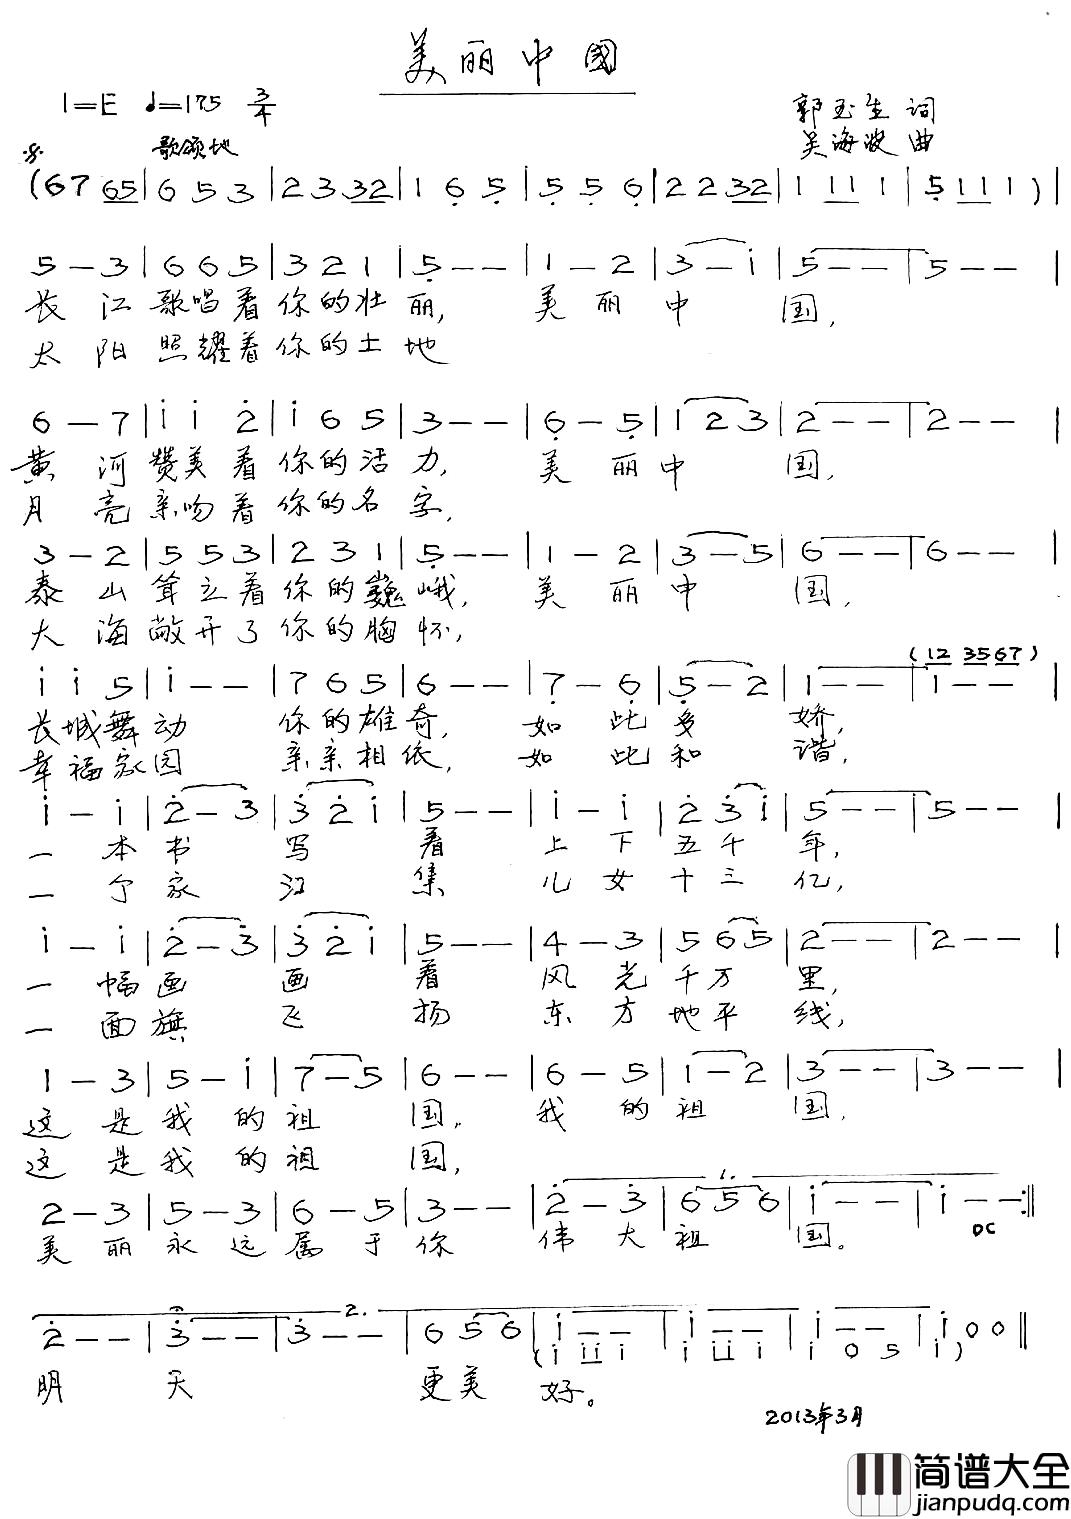 美丽中國
1=E ♩=175 3/4
郭玉生 词
吴海波 曲
歌颂地
(67 65 | 6 5 3 | 2 3 32 | 1 6̣ 5̣ | 5̣ 5̣ 6̣ | 2 2 32 | 1 11 1 | 5̣ 11 1 ) |
5 – 3 | 6 6 5 | 3 2 1 | 5̣ – – | 1 – 2 | 3 – i | 5 – – | 5 – – |
长 江 歌唱着 你的壮 丽, 美 丽 中 国,
太 阳 照耀着 你的土 地
6 – 7 | i i 2̇ | i 6 5 | 3 – – | 6̣ – 5̣ | 1 2 3 | 2 – – | 2 – – |
黄 河 赞美着 你的活 力, 美 丽 中 国,
月 亮 亲吻着 你的名 字,
3 – 2 | 5 5 3 | 2 3 1 | 5̣ – – | 1 – 2 | 3 – 5 | 6 – – | 6 – – |
泰 山 耸立着 你的巍 峨, 美 丽 中 国,
大 海 敞开了 你的胸 怀,
(12 35 67)
i i 5 | i – – | 7 6 5 | 6 – – | 7̣ – 6̣ | 5̣ – 2 | 1 – – | 1 – – |
长城舞 动 你的雄 奇, 如 此 多 娇,
幸福家 园 亲亲相 依, 如 此 和 谐,
i – i | 2̇ – 3̇ | 3̇ 2̇ i | 5 – – | i – i | 2̇ 3̇ i | 5 – – | 5 – – |
一 本 书 写 着 上 下 五 千 年,
一 个 家 汇 集 儿 女 十 三 亿,
i – i | 2̇ – 3̇ | 3̇ 2̇ i | 5 – – | 4 – 3 | 5 6 5 | 2 – – | 2 – – |
一 幅 画 画 着 风 光 千 万 里,
一 面 旗 飞 扬 东 方 地 平 线,
1 – 3 | 5 – i | 7 – 5 | 6 – – | 6 – 5 | 1 – 2 | 3 – – | 3 – – |
这 是 我 的 祖 国。 我 的 祖 国,
这 是 我 的 祖 国,
1.
2 – 3 | 5 – 3 | 6 – 5 | 3 – – | 2̇ – 3̇ | 6 5 6 | i – – | i – – :||
DC
美 丽 永 远 属 于 你 伟 大 祖 国。
2.
2̇ – – | 3̇ – – | 3̇ – – | 6 5 6 | i – – | i – – | i – – | i 0 0 ||
(i ii i | i ii i | i 0 5 | i )
明 天 更美 好。
2013年3月
简谱大全
jianpudq.com